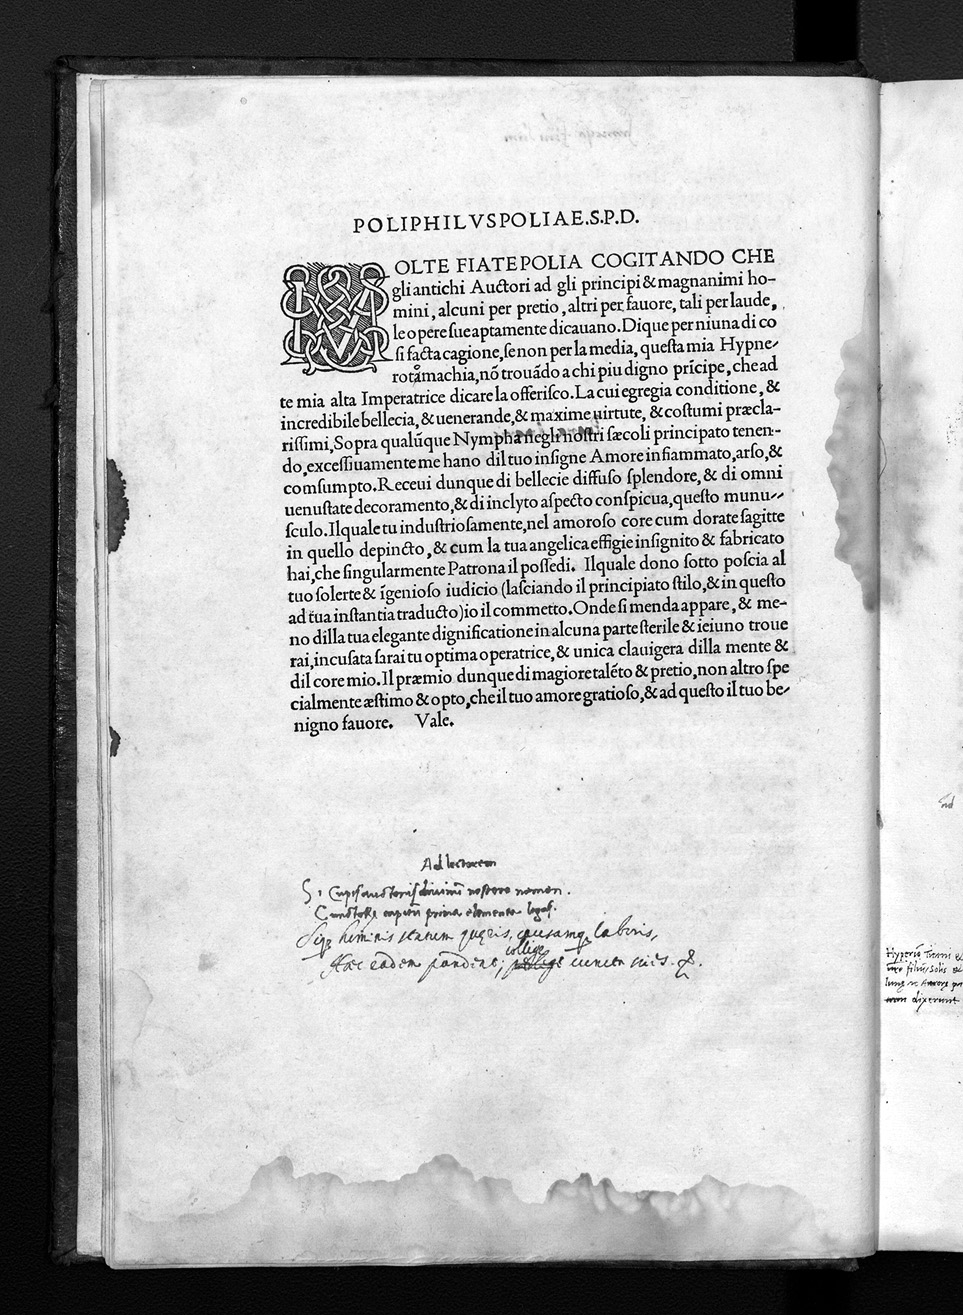 POLIPHILVS POLIAE. S. P. D.
MOLTE FIATE POLIA COGITANDO CHE
gli antichi Auctori ad gli principi & magnanimi ho-
mini, alcuni per pretio, altri per fauore, tali per laude,
le opere sue aptamente dicauano. Dique per niuna di co
si facta cagione, se non per la media, questa mia Hypne-
rotomachia, nõ trouãdo a chi piu digno prĩcipe, che ad
te mia alta Imperatrice dicare la offerisco. La cui egregia conditione, &
incredibile bellecia, & uenerande, & maxime uirtute, & costumi præcla-
rissimi, Sopra qualũque Nympha negli nostri sæcoli principato tenen-
do, excessiuamente me hano dil tuo insigne Amore infiammato, arso, &
comsumpto. Receui dunque di bellecie diffuso splendore, & di omni
uenustate decoramento, & di inclyto aspecto conspicua, questo munu-
sculo. Ilquale tu industriosamente, nel amoroso core cum dorate sagitte
in quello depincto, & cum la tua angelica effigie insignito & fabricato
hai, che singularmente Patrona il possedi. Ilquale dono sotto poscia al
tuo solerte & ĩgenioso iudicio (lasciando il principiato stilo, & in questo
ad tua instantia traducto) io il commetto. Onde si menda appare, & me-
no dilla tua elegante dignificatione in alcuna parte sterile & ieiuno troue
rai, incusata sarai tu optima operatrice, & unica clauigera dilla mente &
dil core mio. Il præmio dunque di magiore talẽto & pretio, non altro spe
cialmente æstimo & opto, che il tuo amore gratioso, & ad questo il tuo be-
nigno fauore. Vale.
Ad lectorem
Si cupis auctoris diuinũ noscere nomen.
Cunctoꝝ capitũ prima elementa legas.
hominis statum quęris, causamq; laboris,
Hæc eadem pandent; collige cuncta
Hyperiõ
filiũ, solis
lunę
dixerunt
ad